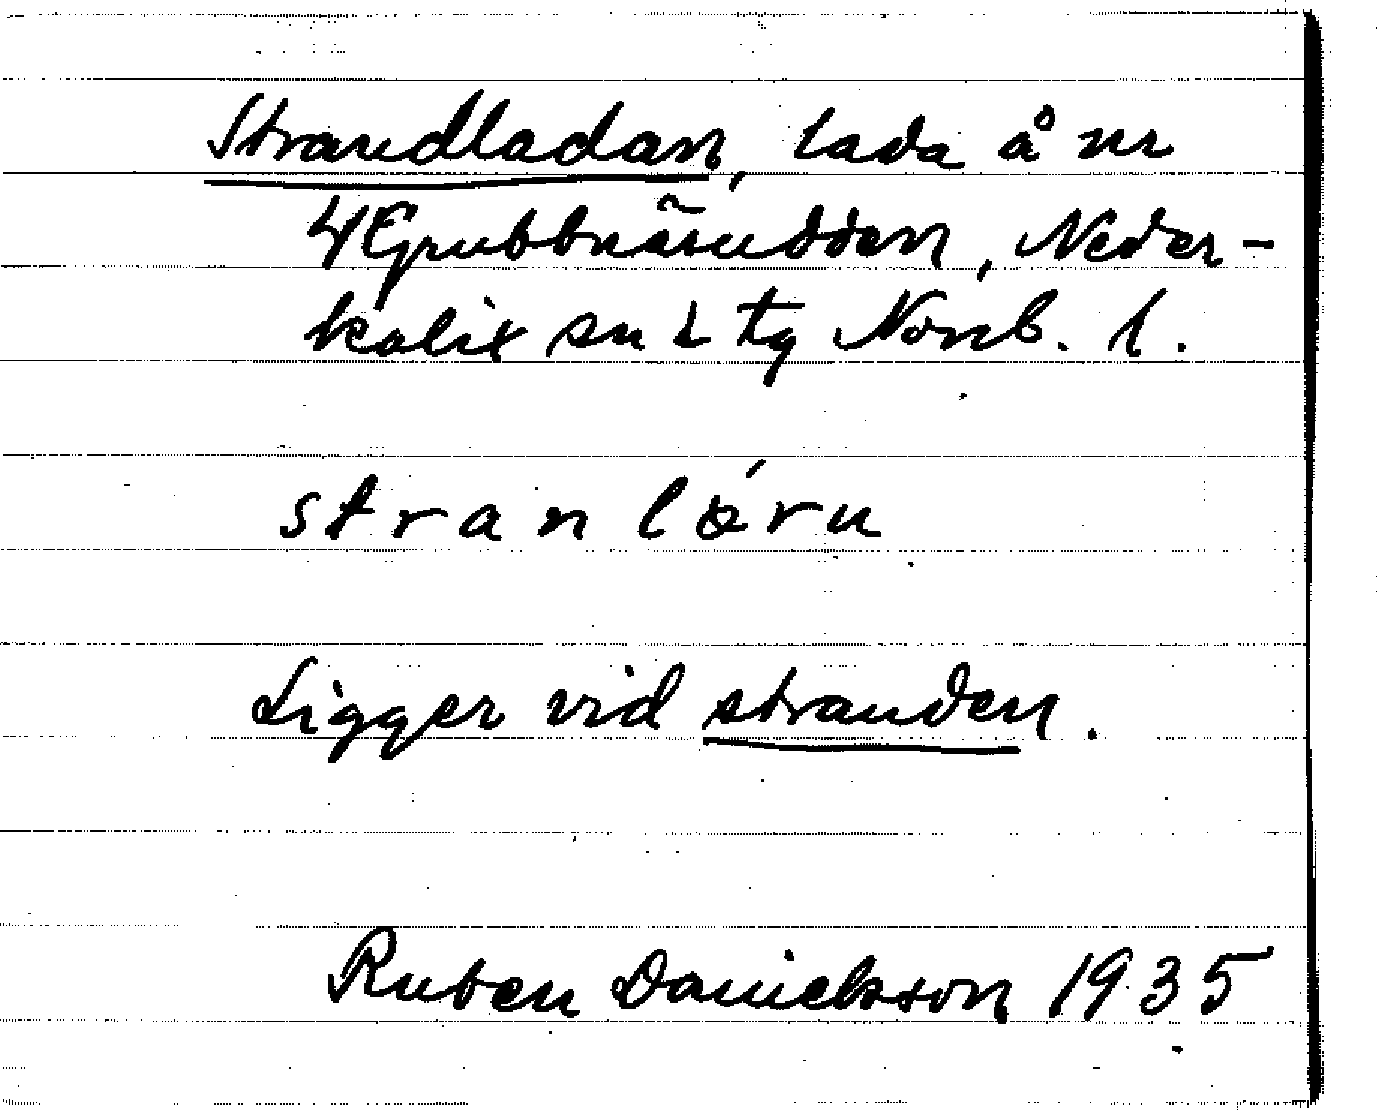 Strandladan, lada å nr
4 Grubbnäsudden, Neder-
kalix sn L tg Norrb. l.
stranló̵ru
Ligger vid stranden.
Ruben Danielsson 1935